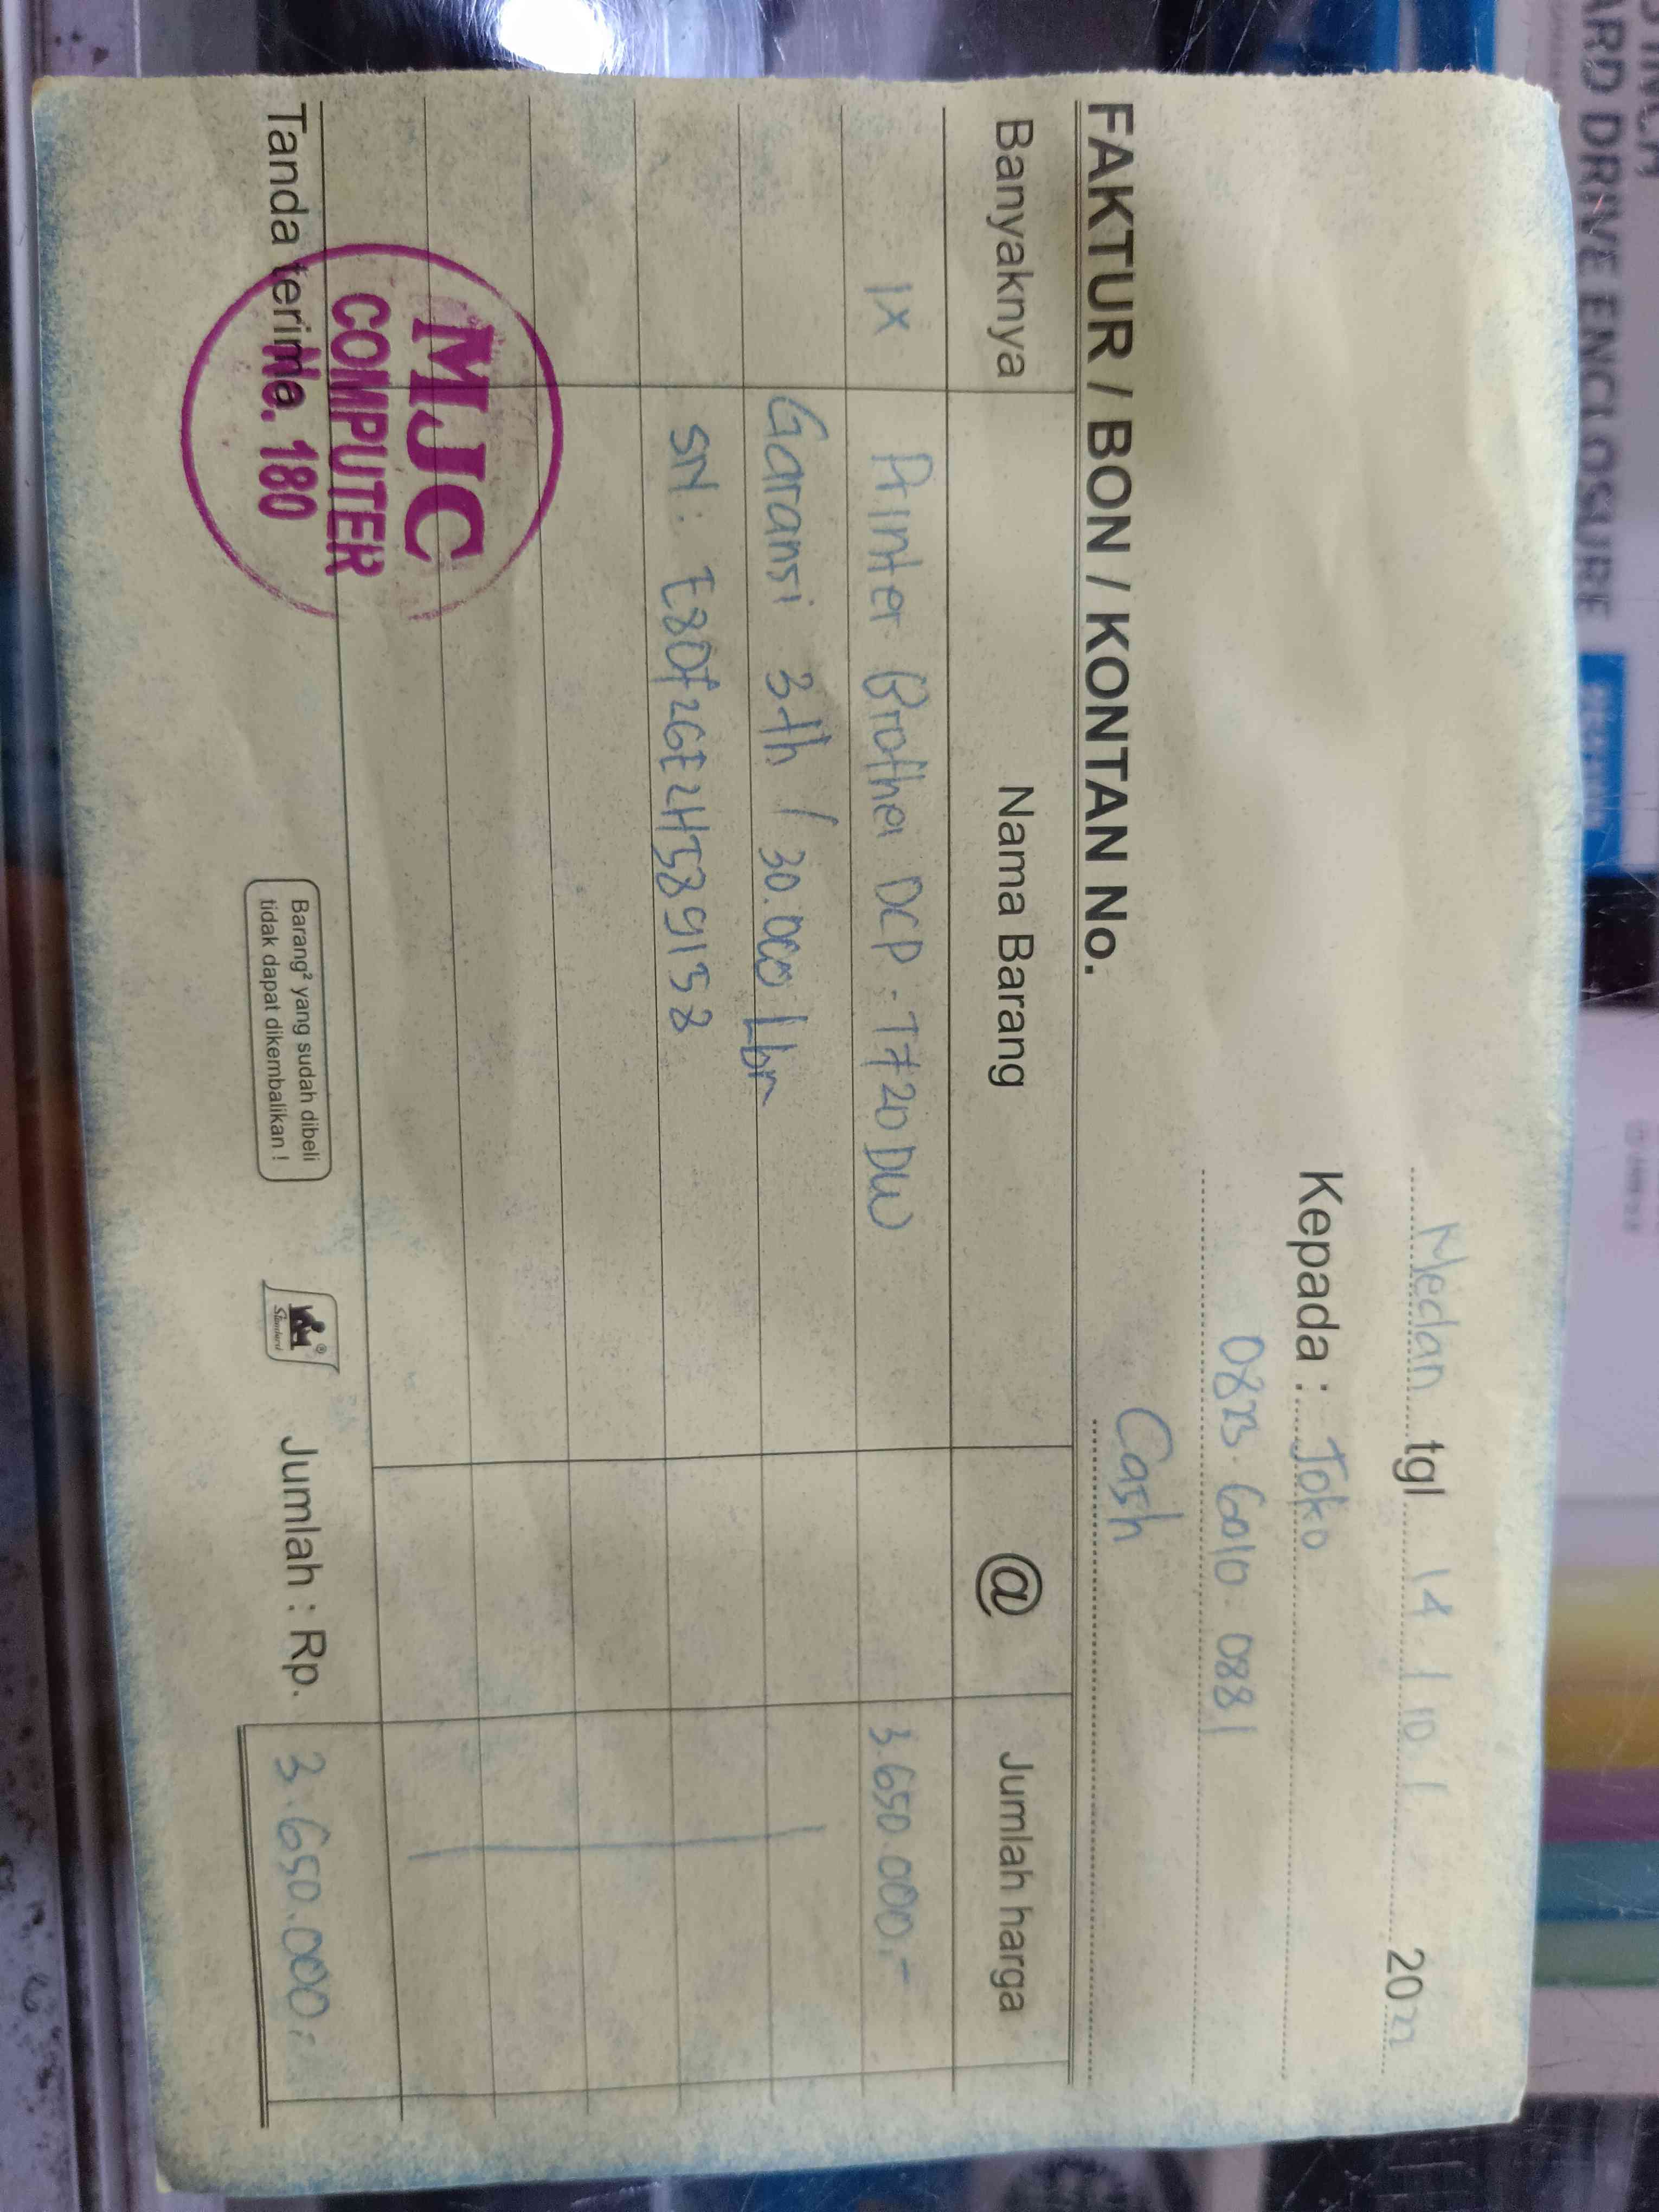 Medan tgl 14 / 10 / 2022
Kepada : Joko
0823 . 6010 . 0881
Cash
FAKTUR / BON / KONTAN No.
Banyaknya Nama Barang @ Jumlah harga
1X Printer Brother DCP - T720DW 3.650.000,-
Garansi 3 th / 30.000 Lbr
SN : E80F26E2H589158
Tanda terima
MJC
COMPUTER
No. 180
Barang² yang sudah dibeli
tidak dapat dikembalikan !
Standard
Jumlah : Rp. 3.650.000,-
INCH
ARD DRIVE ENCLOSURE